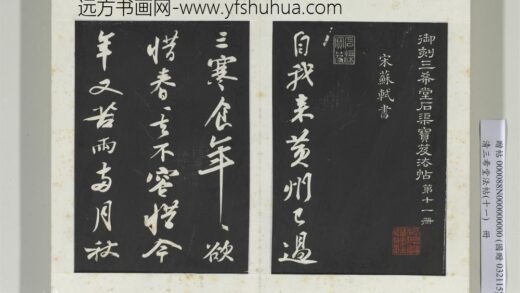 远方书画网-www.yfshuhua.com
御刻三希堂石渠寶笈法帖 第十一冊
宋蘇軾書
自我来黄州已過
三寒食年〻欲
惜春〻去不容惜今
年又苦雨两月秋
清三希堂法帖(十一) 冊